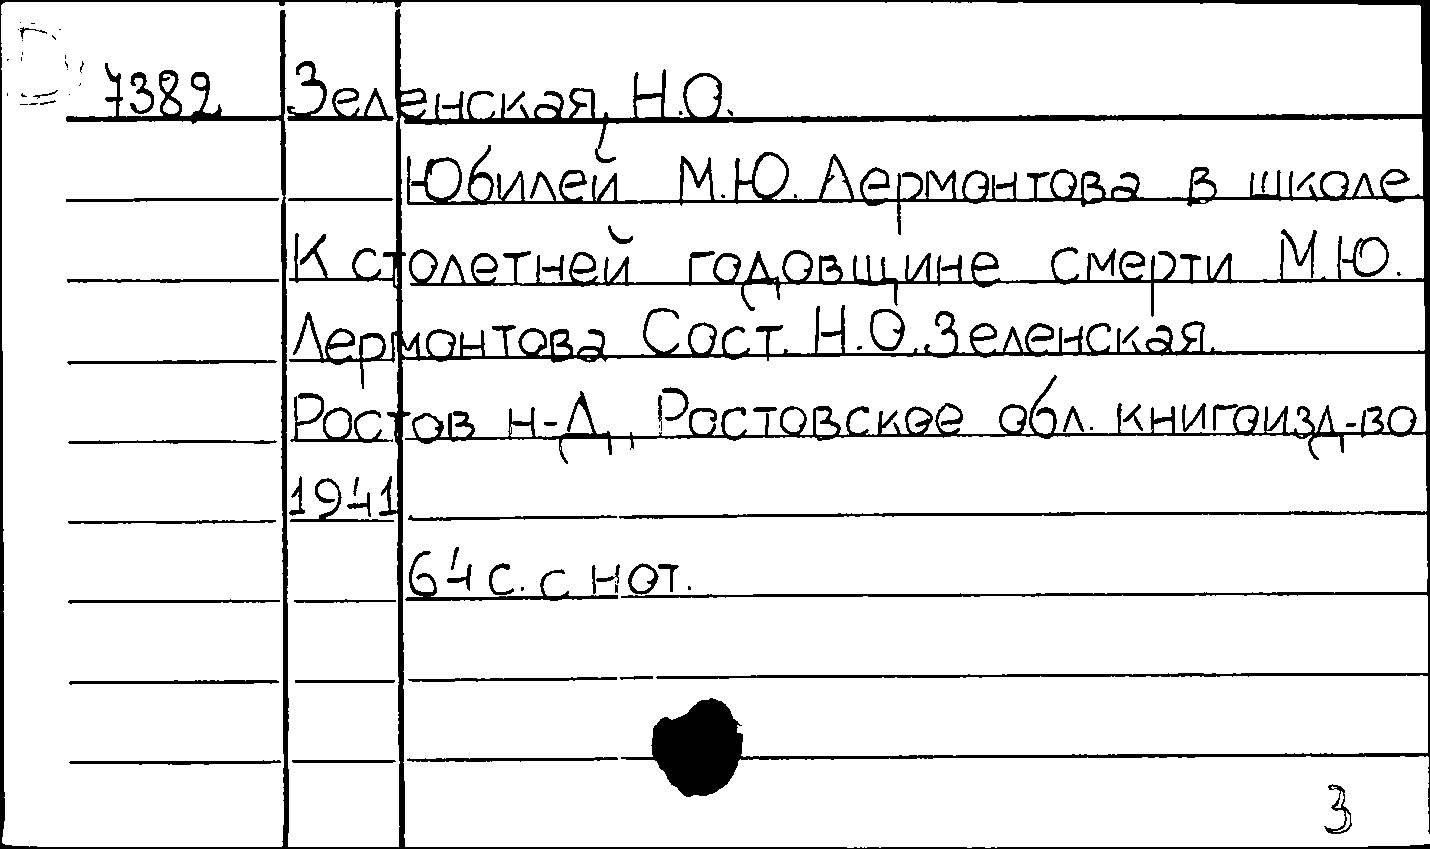 7382 Зеленская, Н.О.
Юбилей М.Ю. Лермонтова в школе
К столетней годовщине смерти М.Ю.
Лермонтова Сост. Н.О.Зеленская.
Ростов н-Д., Ростовское обл. книгоизд-во
1941
64 с. с нот.
3